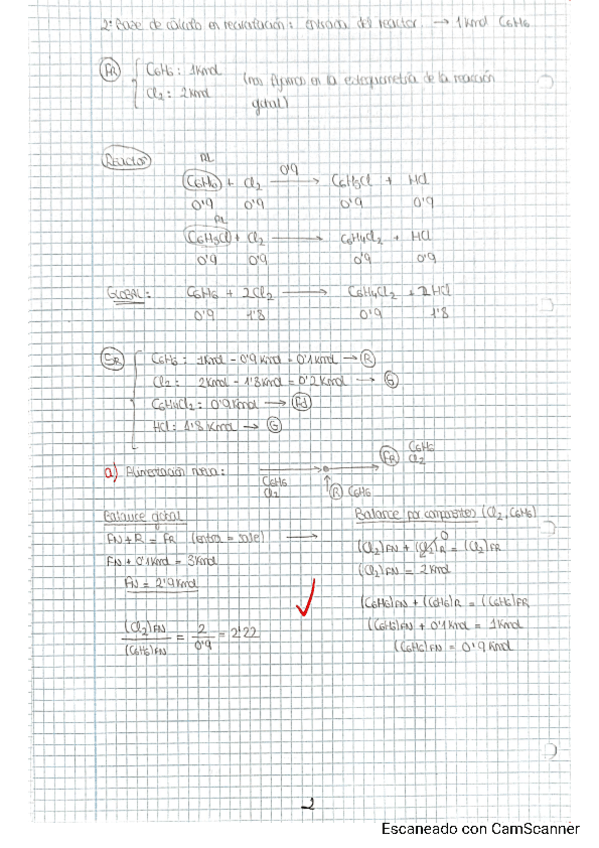 2º Base de cálculo en recirculación: entrada del reactor → 1 Kmol C6H6
FR C6H6: 1 Kmol
Cl2: 2 Kmol
(nos fijamos en la estequiometría de la reacción
global)
Reactor RL
C6H6 + Cl2 → 0'9 C6H5Cl + HCl
0'9 0'9 0'9 0'9
RL
C6H5Cl + Cl2 → C6H4Cl2 + HCl
0'9 0'9 0'9 0'9
GLOBAL: C6H6 + 2Cl2 → C6H4Cl2 + 2HCl
0'9 1'8 0'9 1'8
SR C6H6: 1Kmol - 0'9 Kmol = 0'1 Kmol → R
Cl2: 2Kmol - 1'8 Kmol = 0'2 Kmol → G
C6H4Cl2: 0'9 Kmol → Pd
HCl: 1'8 Kmol → G
a) Alimentación nueva:
C6H6
Cl2
R C6H6
FR C6H6
Cl2
Balance global
FN + R = FR (entra = sale) →
FN + 0'1 Kmol = 3 Kmol
FN = 2'9 Kmol
(Cl2)FN / (C6H6)FN = 2 / 0'9 = 2'22
Balance por componentes (Cl2, C6H6)
(Cl2)FN + (Cl2)R 0 = (Cl2)FR
(Cl2)FN = 2 Kmol
(C6H6)FN + (C6H6)R = (C6H6)FR
(C6H6)FN + 0'1 Kmol = 1 Kmol
(C6H6)FN = 0'9 Kmol
2
Escaneado con CamScanner